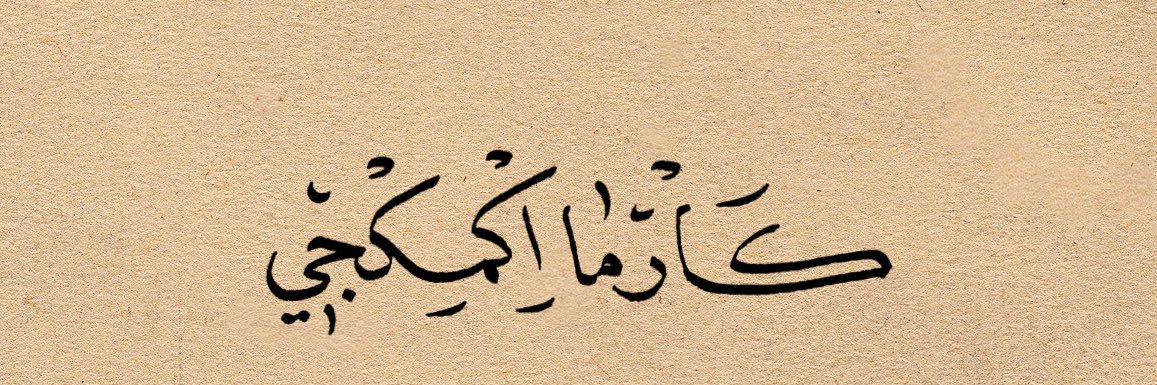 كَارْمَا اِكْمِكْجي